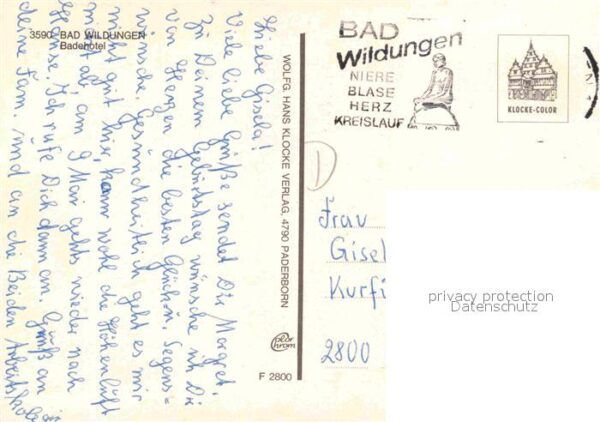 3590 BAD WILDUNGEN
Badehotel
Liebe Gisela!
Viele liebe Grüße sendet Dir Margret.
Zu Deinem Geburtstag wünsche ich Dir
von Herzen die besten Glück- Segens-
wünsche. Gesundheitlich geht es mir
nicht gut hier, kann wohl die Höhenluft
am 9 Mai gehts wieder nach
Hause. Ich rufe Dich dann an. Gruß an
deine Fam. und an die Beiden
WOLFG. HANS KLOCKE VERLAG, 4790 PADERBORN
color
chrom
F 2800
BAD
Wildungen
NIERE
BLASE
HERZ
KREISLAUF
KLOCKE-COLOR
Frau
Gisel
Kurfü
2800
privacy protection
Datenschutz